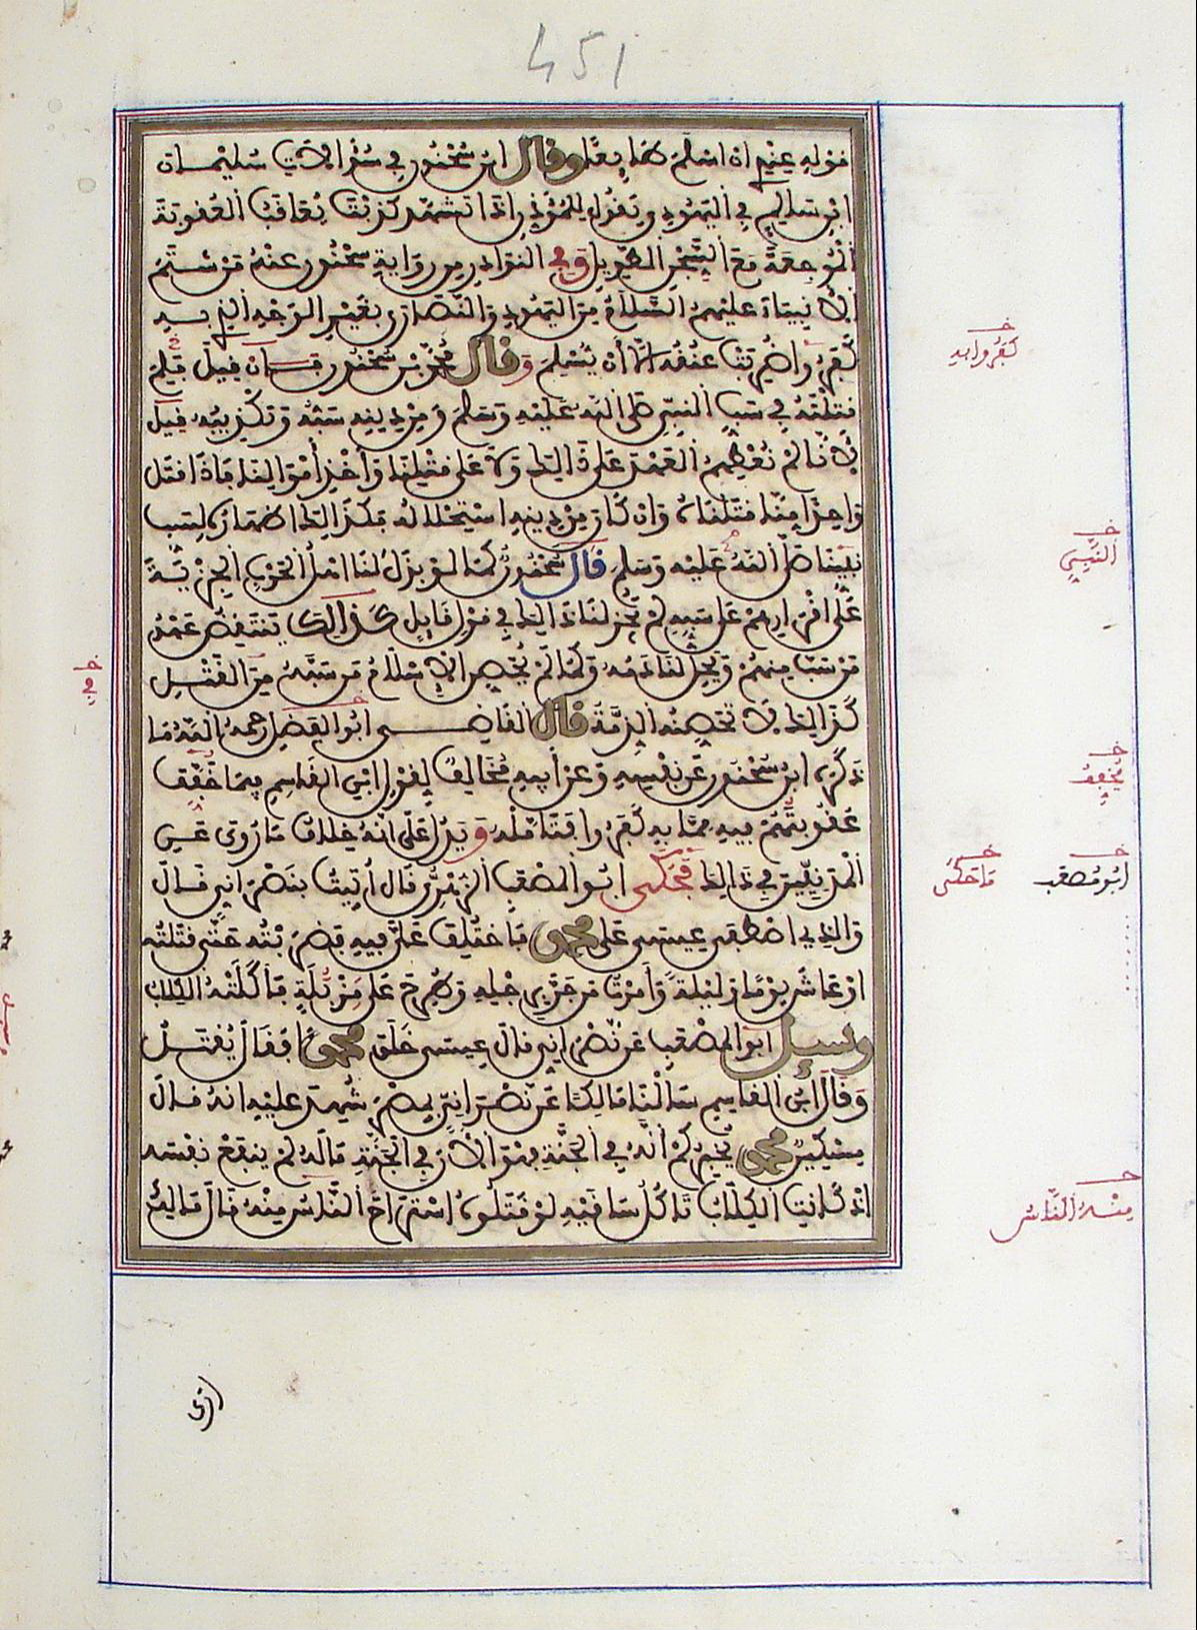 451
قوله عندي ان اسلم طايعا وقال ابن سحنون في سؤالات سليمان
ابن سالم في اليهودي يقول للمؤذن اذا تشهد كذبت يعاقب العقوبة
الموجعة مع السجن الطويل وفي النوادر من رواية سحنون عنه من شتم
الانبياء عليهم السلام من اليهود والنصارى بغير الوجه الذي به
كفر، واضربت عنقه الا أن يسلم وقال محمد بن سحنون فان قيل فلم
قتلته في سب النبي صلى الله عليه وسلم ومن دينه سبه وتكذيبه قيل
لانا لم نعطهم العهد على ذالك ولا على قتلنا وأخذ أموالنا فاذا قتل
واحدا منا قتلناه وان كان من دينه استحلاله فكذالك اظهاره لسب
نبينا صلى الله عليه وسلم قال سحنون كما لو بذل لنا اهل الحرب الجزية
على اقرارهم على سبه لم يجز لنا ذالك في قول قايل كذالك ينتقض عهد
من سب منهم ويحل لنا دمه وكما لم يحصن الاسلام من سبه من القتل
كذالك لا تحصنه الذمة قال القاضي ابو الفضل رحمه الله ما
ذكره ابن سحنون عن نفسه وعن ابيه مخالف لقول ابن القاسم فيما خفف
عقوبتهم فيه مما به كفروا فتامله ويدل على انه خلاف ما روي عن
المدنيين في ذالك فحكى ابو المصعب الزهري قال أتيت بنصراني قال
والذي اصطفى عيسى على محمد فاختلف علي فيه فضربته حتى قتلته
او عاش يوما وليلة وأمرت من جر برجله وطرح على مزبلة فأكلته الكلاب
وسيل ابو المصعب عن نصراني قال عيسى خلق محمدا فقال يقتل
وقال ابن القاسم سالنا مالكا عن نصراني بمصر شهد عليه انه قال
مسكين محمد يخبركم انه في الجنة فهو الآن في الجنة ماله لم ينفع نفسه
اذ كانت الكلاب تاكل ساقيه لو قتلوه استراح الناس منه قال مالك
خـ
كفروا به
خـ
النبي
خـ
في
خـ
يخفف
خـ
ابو مصعب
خـ
ما حكى
خـ
منه الناس
ارى